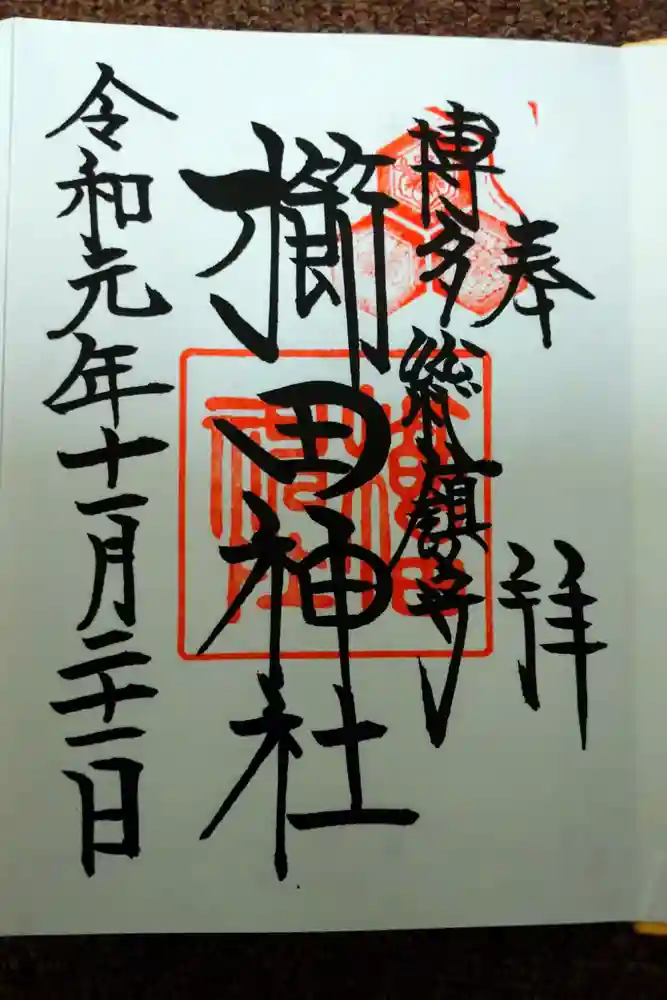 奉拝
博多総鎮守
櫛田神社
令和元年十一月二十一日
櫛田
神社